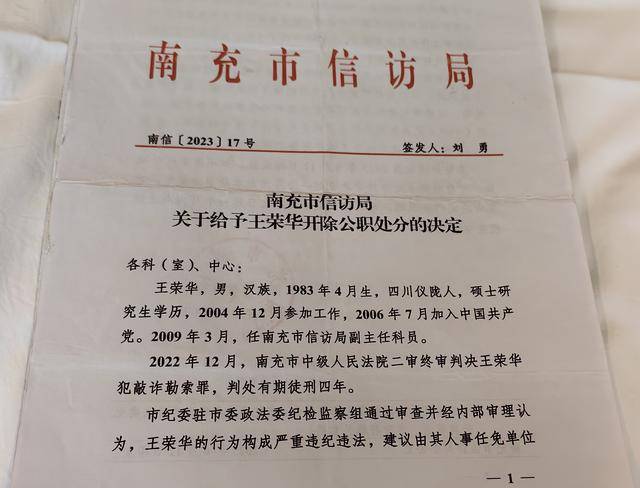 南充市信访局
南信〔2023〕17号 签发人：刘 勇
南充市信访局
关于给予王荣华开除公职处分的决定
各科（室）、中心：
王荣华，男，汉族，1983年4月生，四川仪陇人，硕士研
究生学历，2004年12月参加工作，2006年7月加入中国共产
党。2009年3月，任南充市信访局副主任科员。
2022年12月，南充市中级人民法院二审终审判决王荣华
犯敲诈勒索罪，判处有期徒刑四年。
市纪委驻市委政法委纪检监察组通过审查并经内部审理认
为，王荣华的行为构成严重违纪违法，建议由其人事任免单位
— 1 —